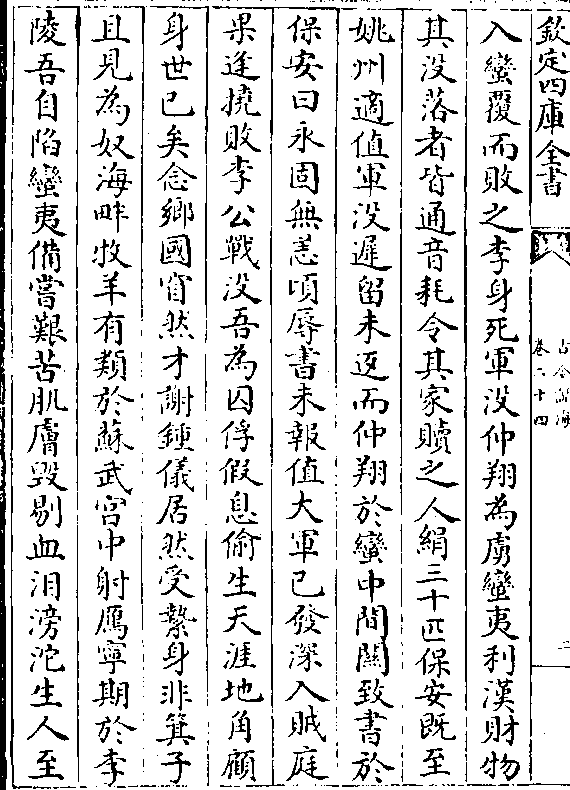 欽定四庫全書
古今說海
卷六十四
二
入蠻覆而敗之李身死軍没仲翔為虜蠻夷利漢財物
其没落者皆通音耗令其家贖之人絹三十匹保安既至
姚州適值軍没遲留未返而仲翔於蠻中間關致書於
保安曰永固無恙頃辱書未報值大軍已發深入賊庭
果逢撓敗李公戰没吾為囚俘假息偷生天涯地角顧
身世已矣念鄉國窅然才謝鍾儀居然受縶身非箕子
且見為奴海畔牧羊有類於蘇武宫中射鴈寧期於李
陵吾自陷蠻夷備嘗艱苦肌膚毁剔血泪滂沱生人至